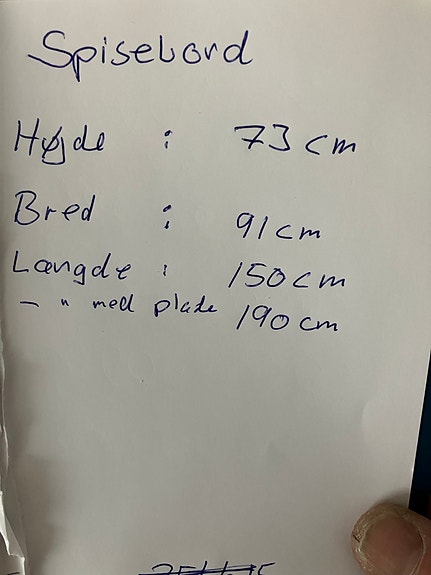 Spisebord
Højde : 73 cm
Bred : 91 cm
Længde : 150 cm
— " med plade 190 cm